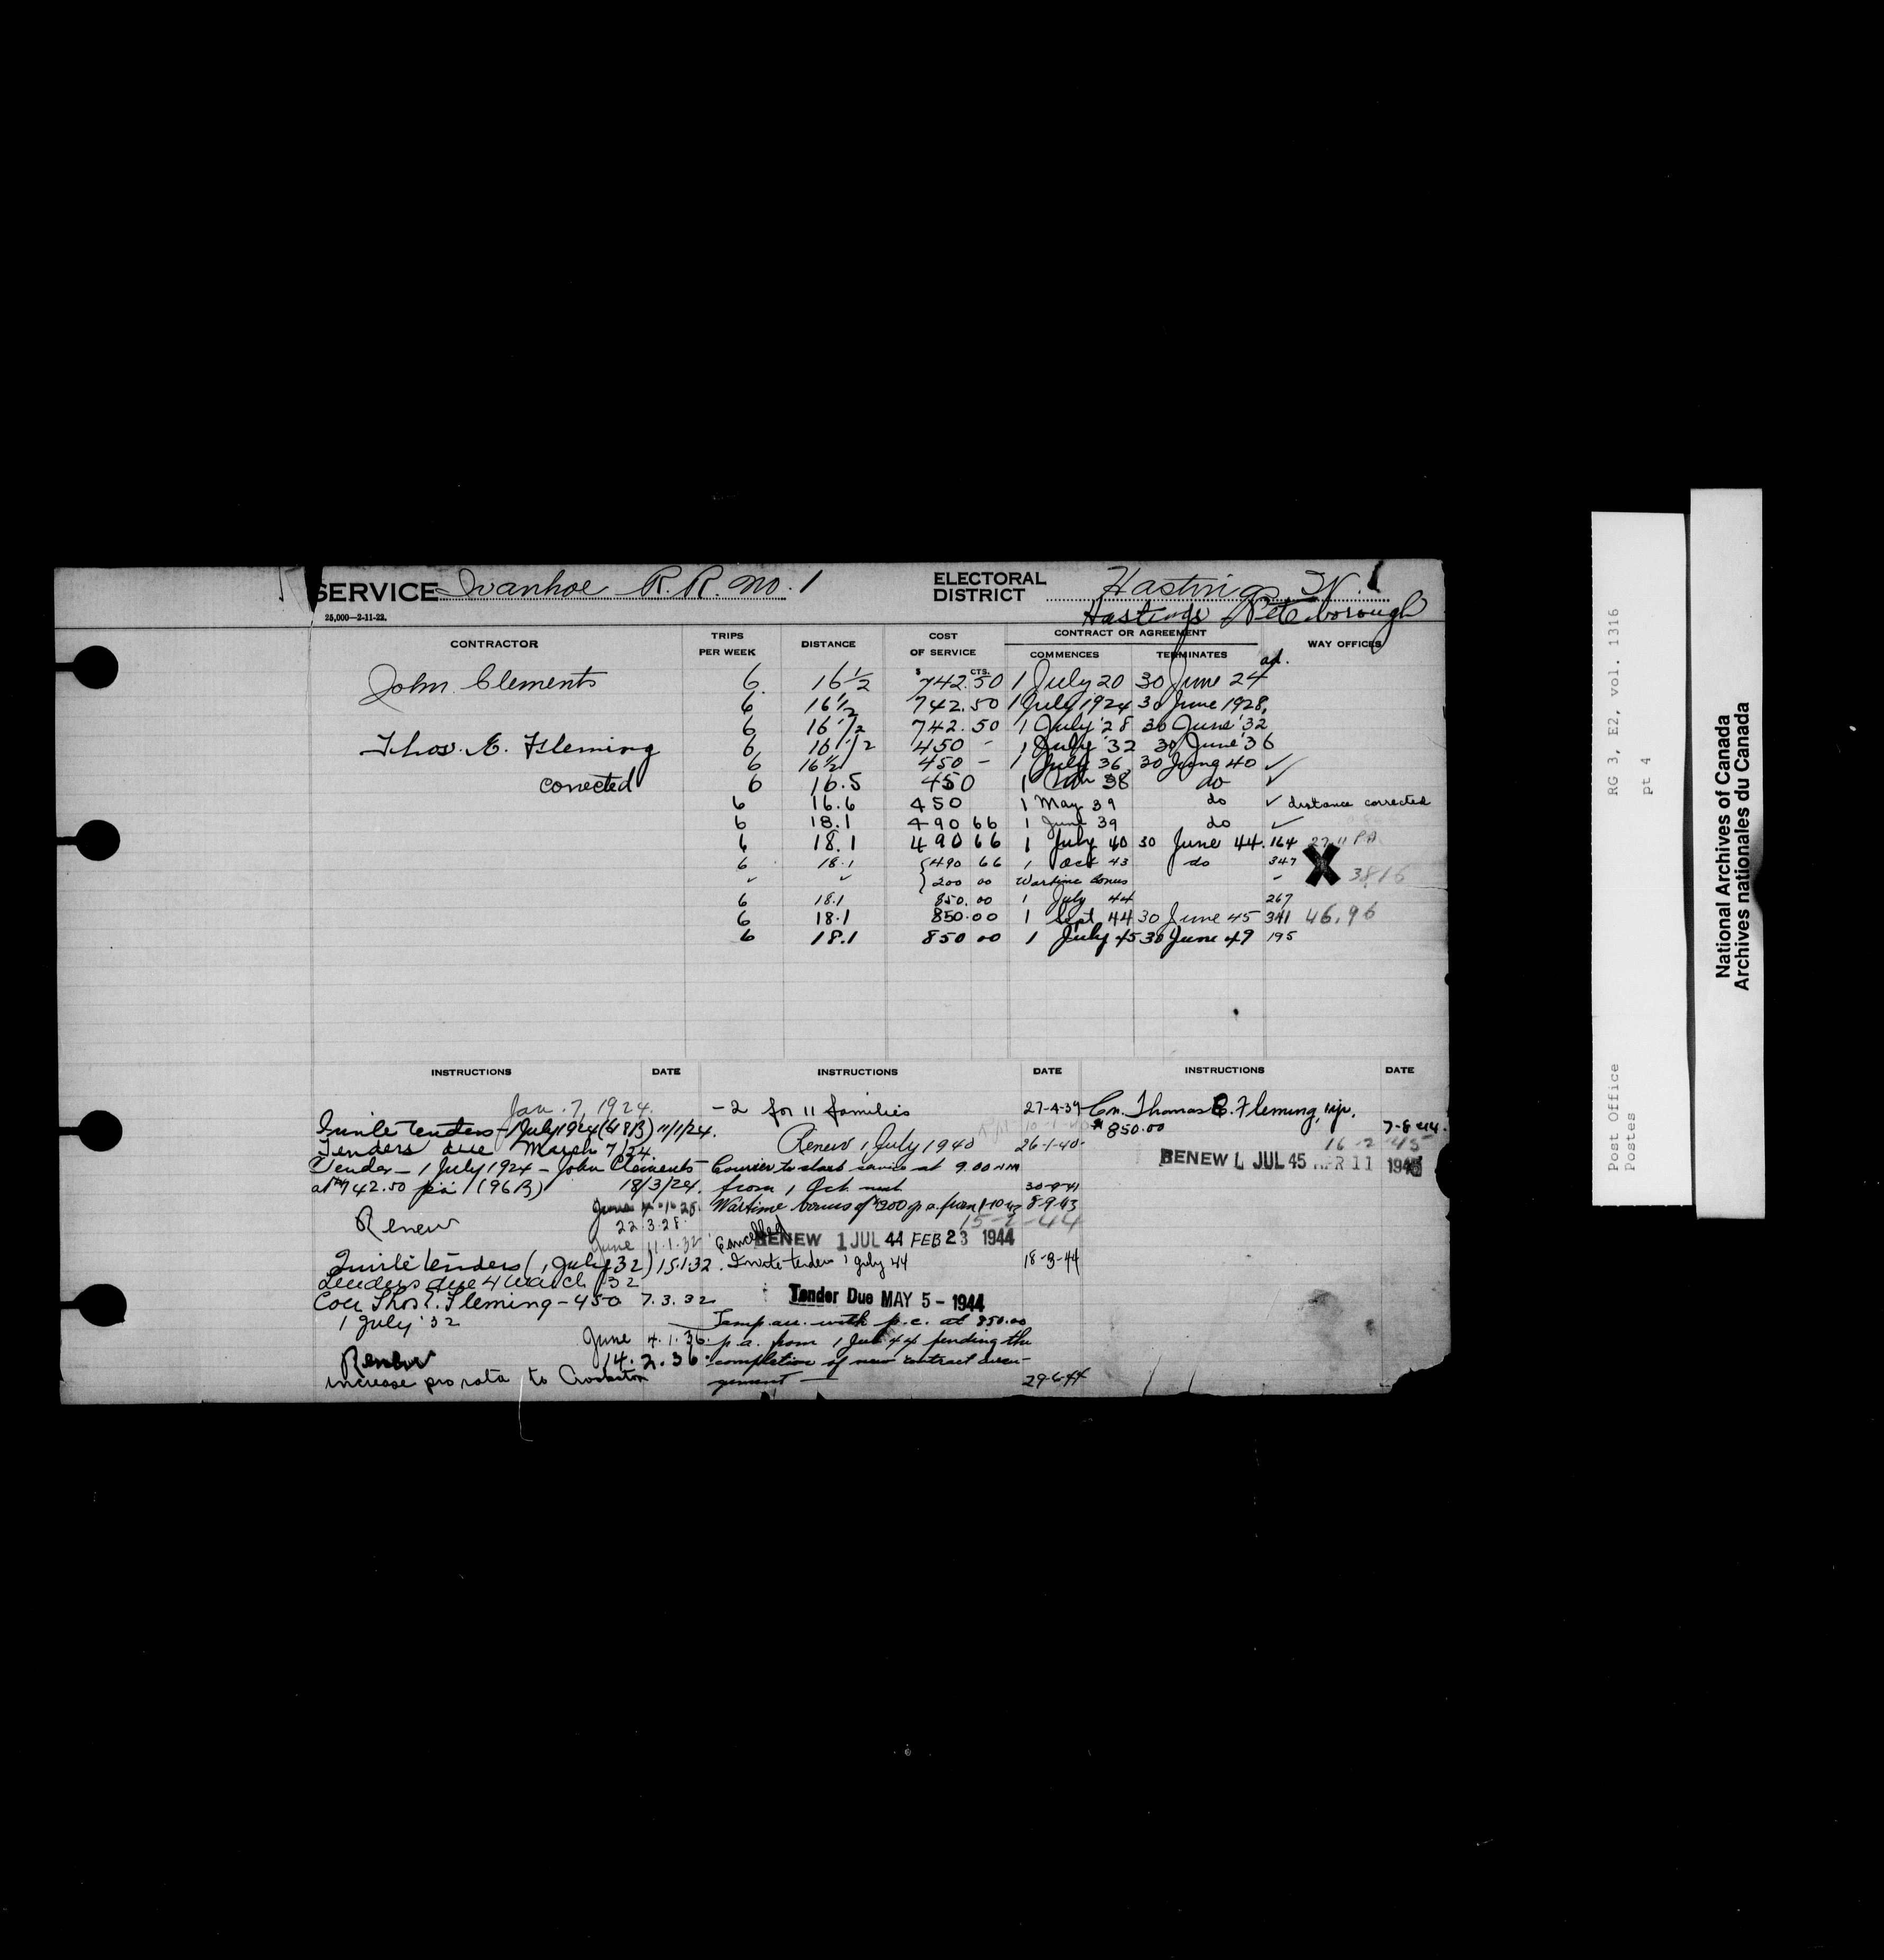 SERVICE Ivanhoe R.R. No. 1 ELECTORAL DISTRICT Hastings N.
25,000—2-11-22. Hastings Peterborough
CONTRACTOR TRIPS PER WEEK DISTANCE COST OF SERVICE CONTRACT OR AGREEMENT COMMENCES TERMINATES WAY OFFICES
$ CTS.
John Clements 6 16 1/2 742.50 1 July 20 30 June 24
6 16 1/2 742.50 1 July 1924 30 June 1928
6 16 1/2 742.50 1 July '28 30 June '32
Thos. E. Fleming 6 16 1/2 450 - 1 July '32 30 June '36
6 16 1/2 450 - 1 July 36 30 June 40 ✓
corrected 6 16.5 450 1 38 do ✓
6 16.6 450 1 May 39 do ✓ distance corrected
6 18.1 490 66 1 June 39 do ✓
6 18.1 490 66 1 July 40 30 June 44 164 27 11 PA
6 18.1 { 490 66 1 Oct 43 do 347 X 3816
✓ ✓ { 200 00 Wartime bonus -
6 18.1 850.00 1 July 44 267
6 18.1 850.00 1 Sept 44 30 June 45 341 46.96
6 18.1 850 00 1 July 45 30 June 49 195
INSTRUCTIONS DATE
Jan. 7, 1924.
Invite tenders - 1 July 1924 (48B) 11/1/24.
Tenders due March 7/24.
Tender - 1 July 1924 - John Clements
at $742.50 pa (96B) 18/3/24.
June 28
Renew 22.3.28
June 11.1.32
Invite tenders (1 July 32) 15.1.32
Tenders due 4 March 32
Thos E. Fleming - 450 7.3.32
1 July '32
June 4.1.36
Renew 14.2.36
increase pro rata to Crookston
INSTRUCTIONS DATE
- 2 for 11 families 27-4-39
Renew 1 July 1940 26-1-40
Courier to start service at 9.00 AM
from 1 Oct. next 30-9-41
Wartime bonus of $200 p a from 1-10-43 8-9-43
15-2-44
Cancelled RENEW 1 JUL 44 FEB 23 1944
Invite tenders 1 July 44 18-3-44
Tender Due MAY 5 - 1944
Temp. arr. with p.c. at 850.00
p.a. from 1 July 44 pending the
completion of new contract arran-
gement — 29-6-44
INSTRUCTIONS DATE
Con. Thomas E. Fleming, 1 yr.
$850.00 7-8-44
16-2-45
RENEW 1 JUL 45 APR 11 1945
RG 3, E2, vol. 1316
pt 4
Post Office
Postes
National Archives of Canada
Archives nationales du Canada